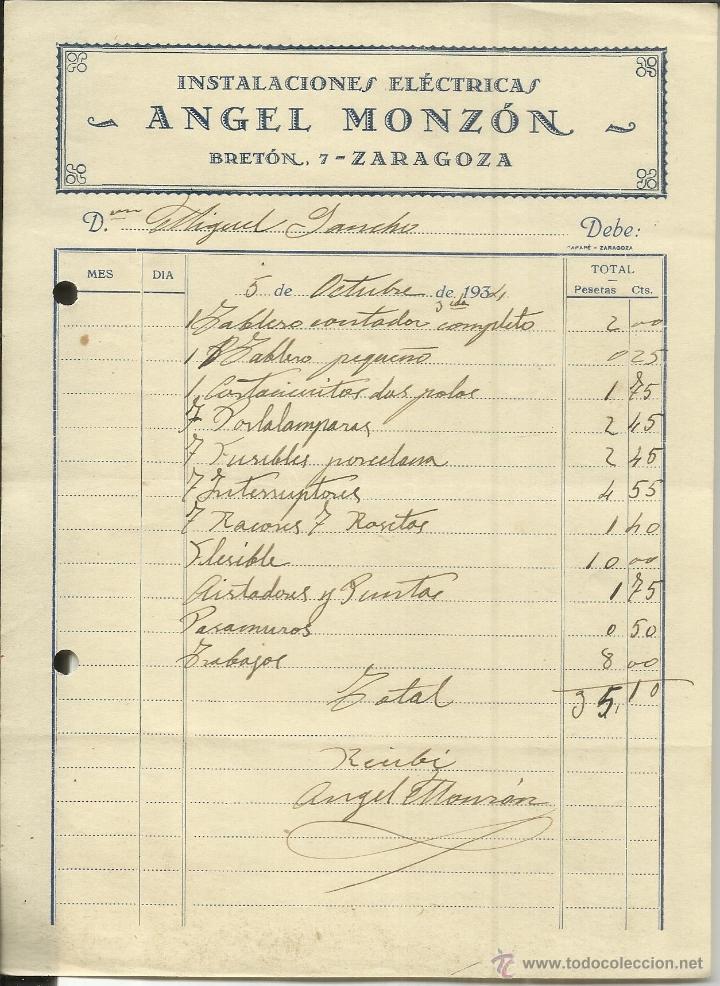 INSTALACIONES ELÉCTRICAS
ANGEL MONZÓN
BRETÓN, 7 - ZARAGOZA
D. Miguel Sancho Debe:
MES DIA TOTAL
Pesetas Cts.
5 de Octubre de 1934
1 Tablero contador completo 2 00
1 Tablero pequeño 0 25
1 Cortacircuitos dos polos 1 75
7 Portalamparas 2 45
7 Fusibles porcelana 2 45
7 Interruptores 4 55
7 Racores 7 Rosetas 1 40
Flexible 10 00
Aisladores y Puntas 1 75
Pasamuros 0 50
Trabajos 8 00
Total 35,10
Recibi
Angel Monzón
www.todocoleccion.net